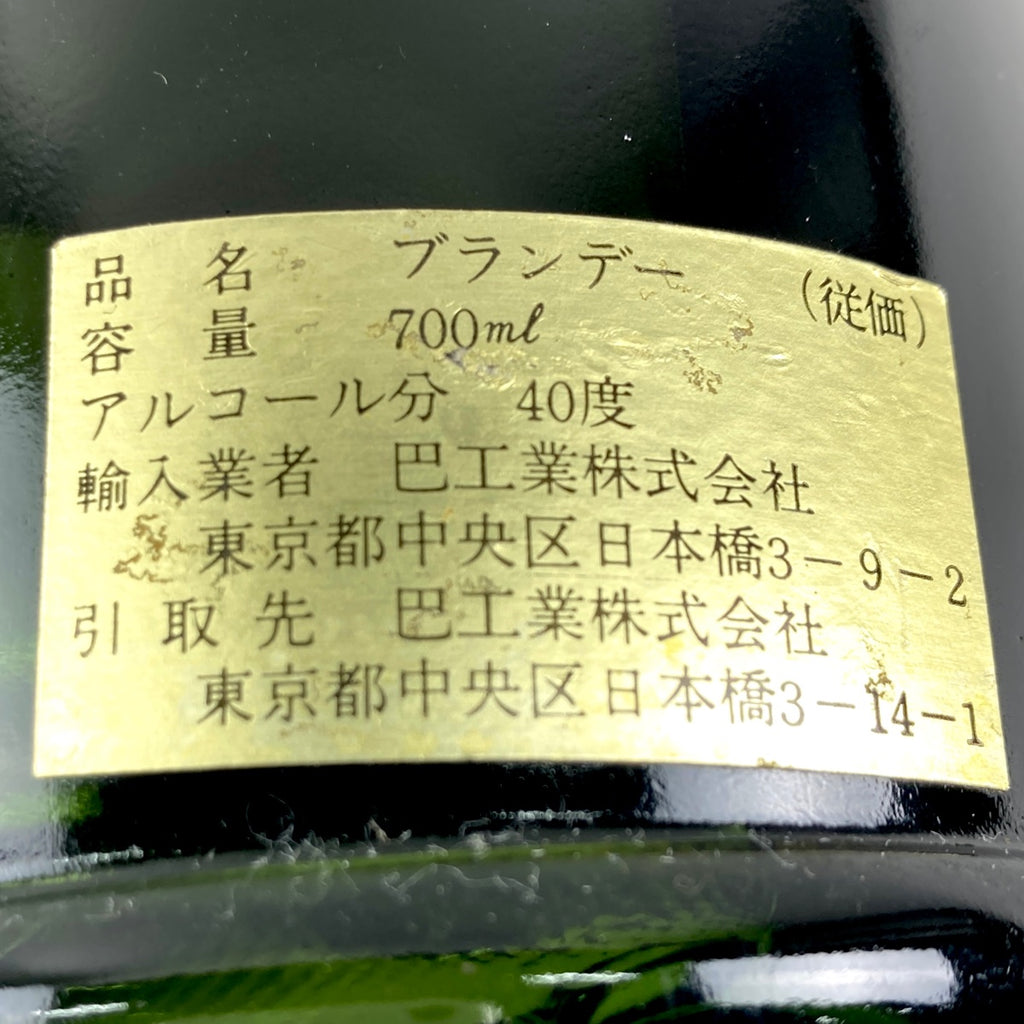 品名 ブランデー (従価)
容量 700ml
アルコール分 40度
輸入業者 巴工業株式会社
東京都中央区日本橋3-9-2
引取先 巴工業株式会社
東京都中央区日本橋3-14-1